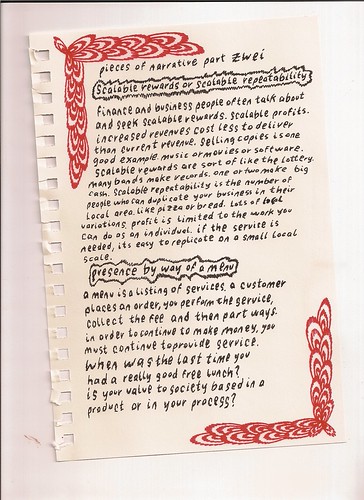 pieces of narrative part zwei
Scalable rewards or scalable repeatability
Finance and business people often talk about
and seek scalable rewards. Scalable profits.
increased revenues cost less to deliver
than current revenue. Selling copies is one
good example music or movies or software.
Scalable rewards are sort of like the lottery.
many bands make records. one or two make big
cash. Scalable repeatability is the number of
people who can duplicate your business in their
local area. like pizza or bread. Lots of local
variations, profit is limited to the work you
can do as an individual. if the service is
needed, its easy to replicate on a small local
scale.
presence by way of a menu
a menu is a listing of services. a customer
places an order, you perform the service,
collect the fee and then part ways.
in order to continue to make money, you
must continue to provide service.
when was the last time you
had a really good free lunch?
is your value to society based in a
product or in your process?